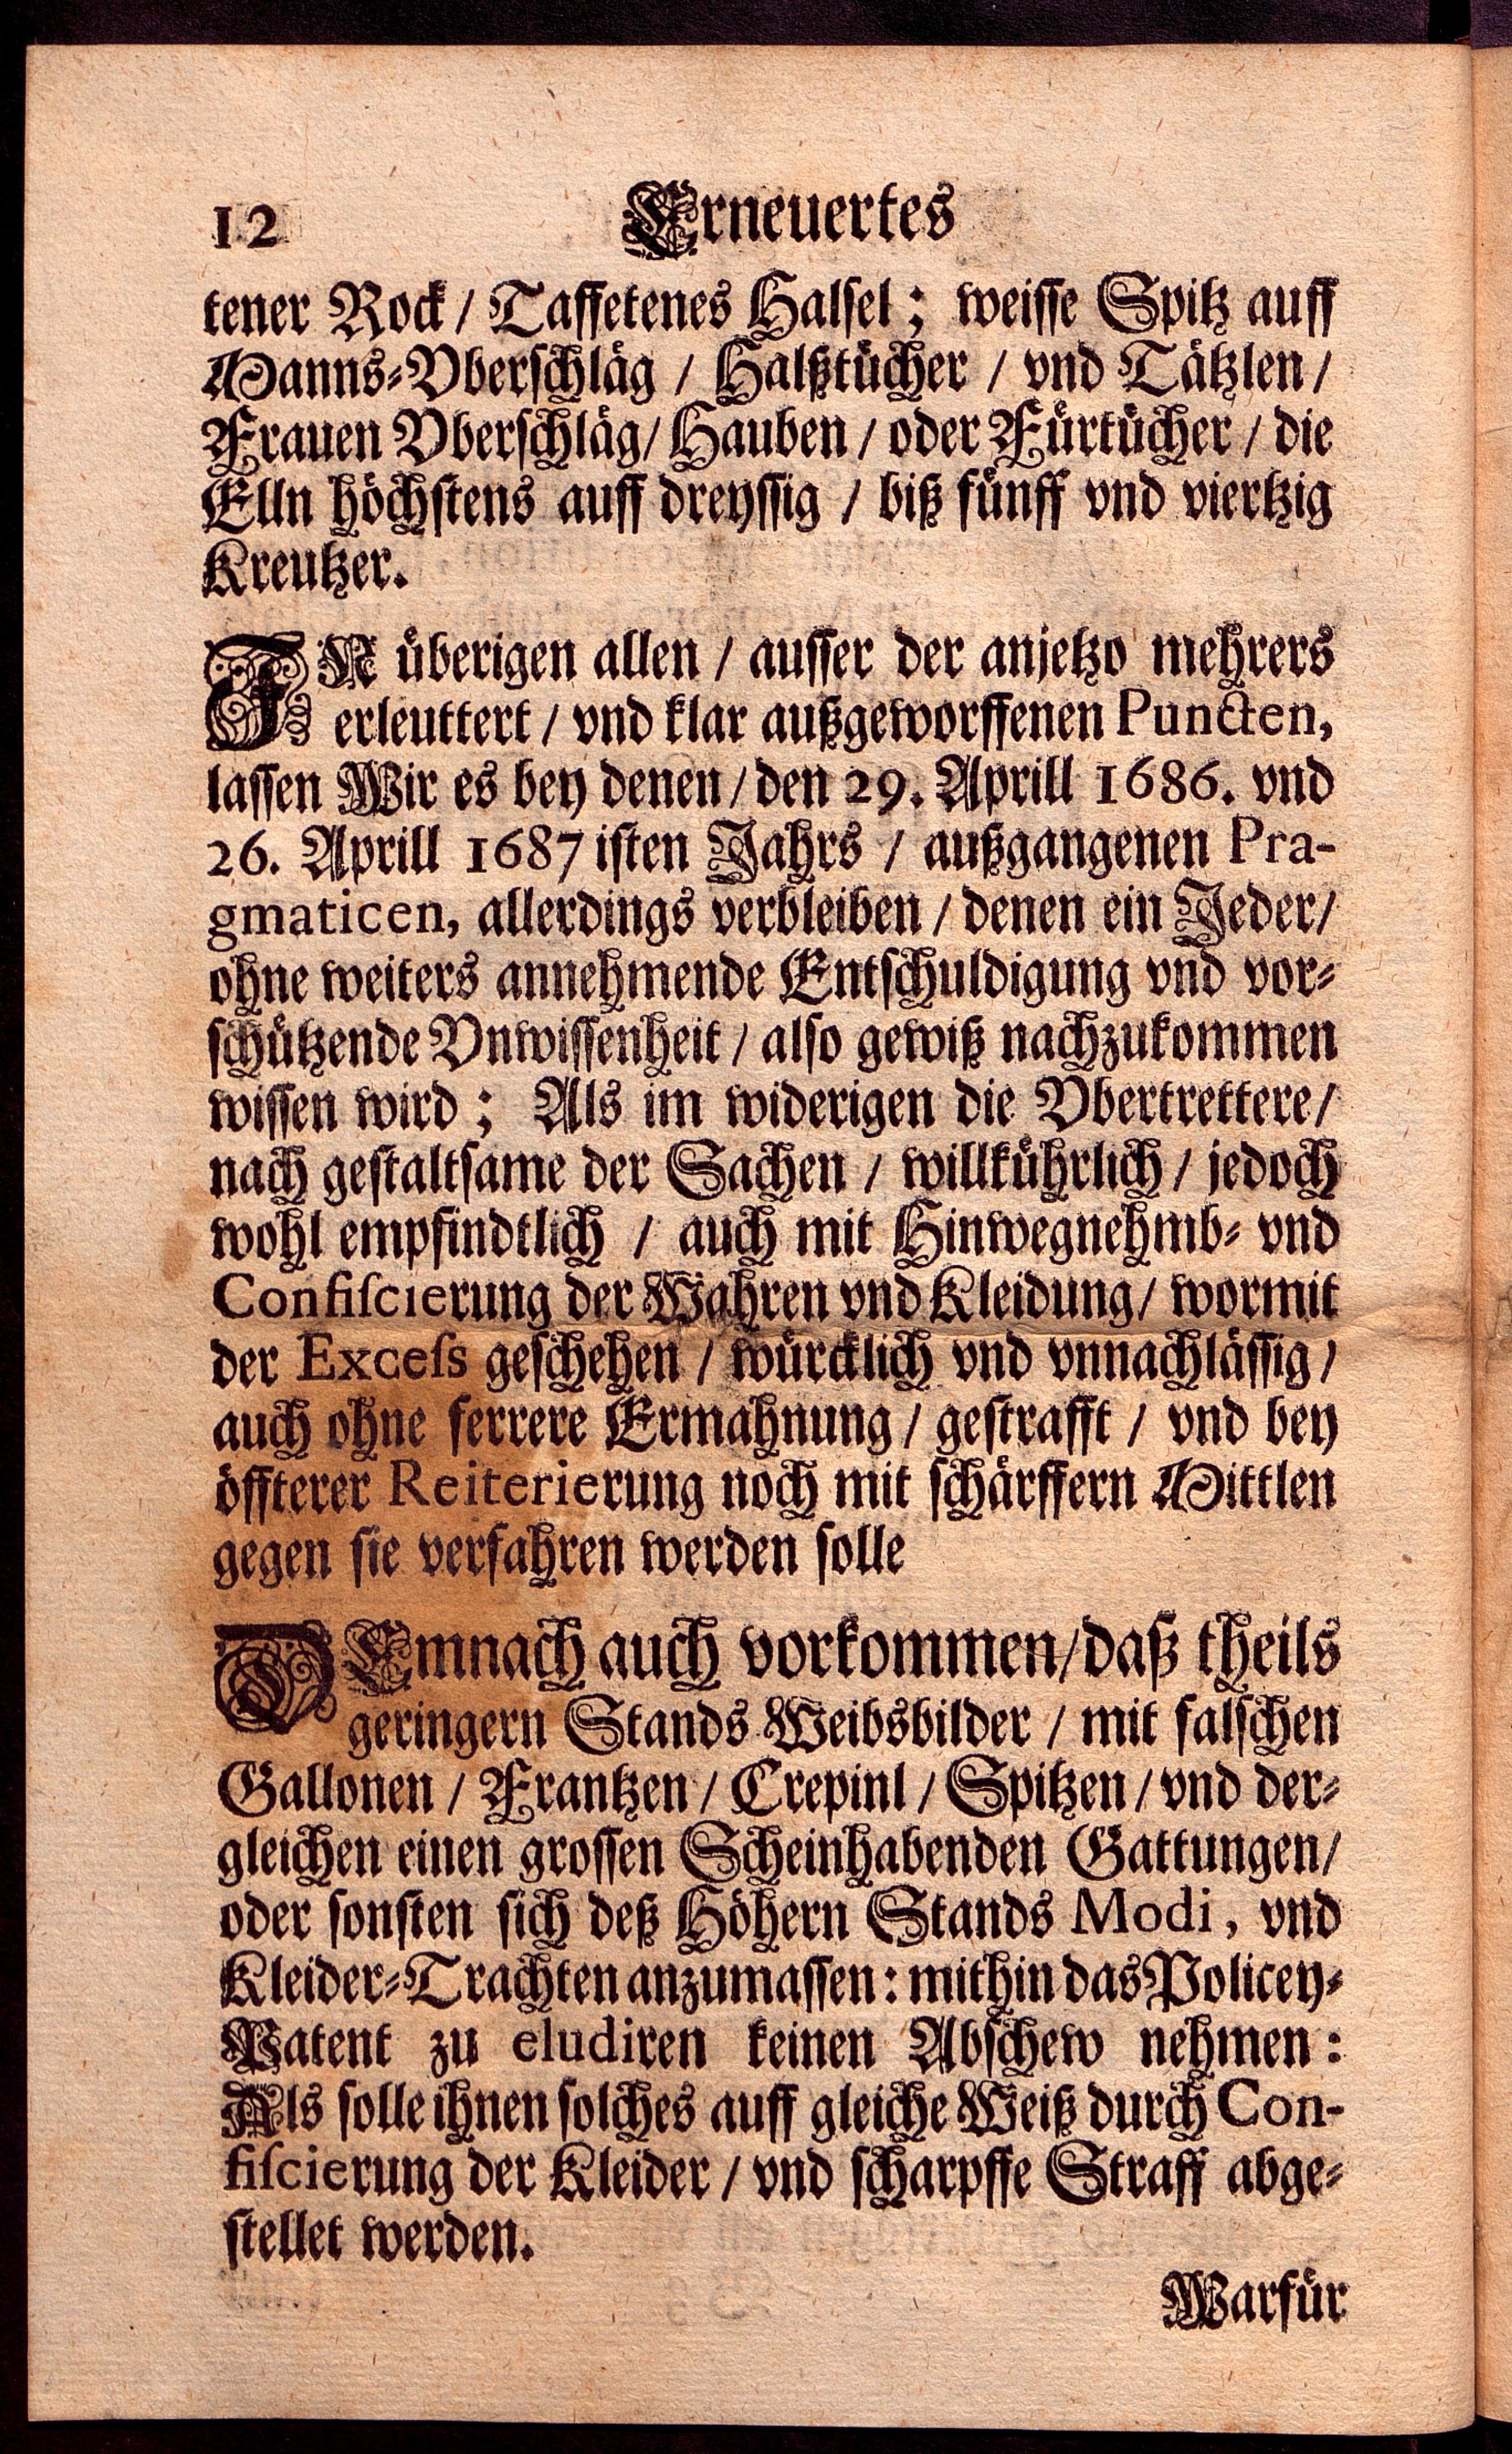 12 Erneuertes
tener Rock / Taffetenes Halsel; weisse Spitz auff
Manns-Vberschläg / Halßtücher / vnd Tätzlen /
Frauen Vberschläg / Hauben / oder Fürtücher / die
Elln höchstens auff dreyssig / biß fünff vnd viertzig
Kreutzer.
IN überigen allen / ausser der anjetzo mehrers
erleuttert / vnd klar außgeworffenen Puncten,
lassen Wir es bey denen / den 29. Aprill 1686. vnd
26. Aprill 1687isten Jahrs / außgangenen Pra-
gmaticen, allerdings verbleiben / denen ein Jeder /
ohne weiters annehmende Entschuldigung vnd vor-
schützende Vnwissenheit / also gewiß nachzukommen
wissen wird; Als im widerigen die Vbertrettere /
nach gestaltsame der Sachen / willkührlich / jedoch
wohl empfindtlich / auch mit Hinwegnehmb- vnd
Confiscierung der Wahren vnd Kleidung / wormit
der Excess geschehen / würcklich vnd vnnachlässig /
auch ohne ferrere Ermahnung / gestrafft / vnd bey
öffterer Reiterierung noch mit schärffern Mittlen
gegen sie verfahren werden solle
DEmnach auch vorkommen / daß theils
geringern Stands Weibsbilder / mit falschen
Gallonen / Frantzen / Crepinl / Spitzen / vnd der-
gleichen einen grossen Scheinhabenden Gattungen /
oder sonsten sich deß Höhern Stands Modi, vnd
Kleider-Trachten anzumassen: mithin das Policey-
Patent zu eludiren keinen Abschew nehmen:
Als solle ihnen solches auff gleiche Weiß durch Con-
fiscierung der Kleider / vnd scharpffe Straff abge-
stellet werden.
Warfür